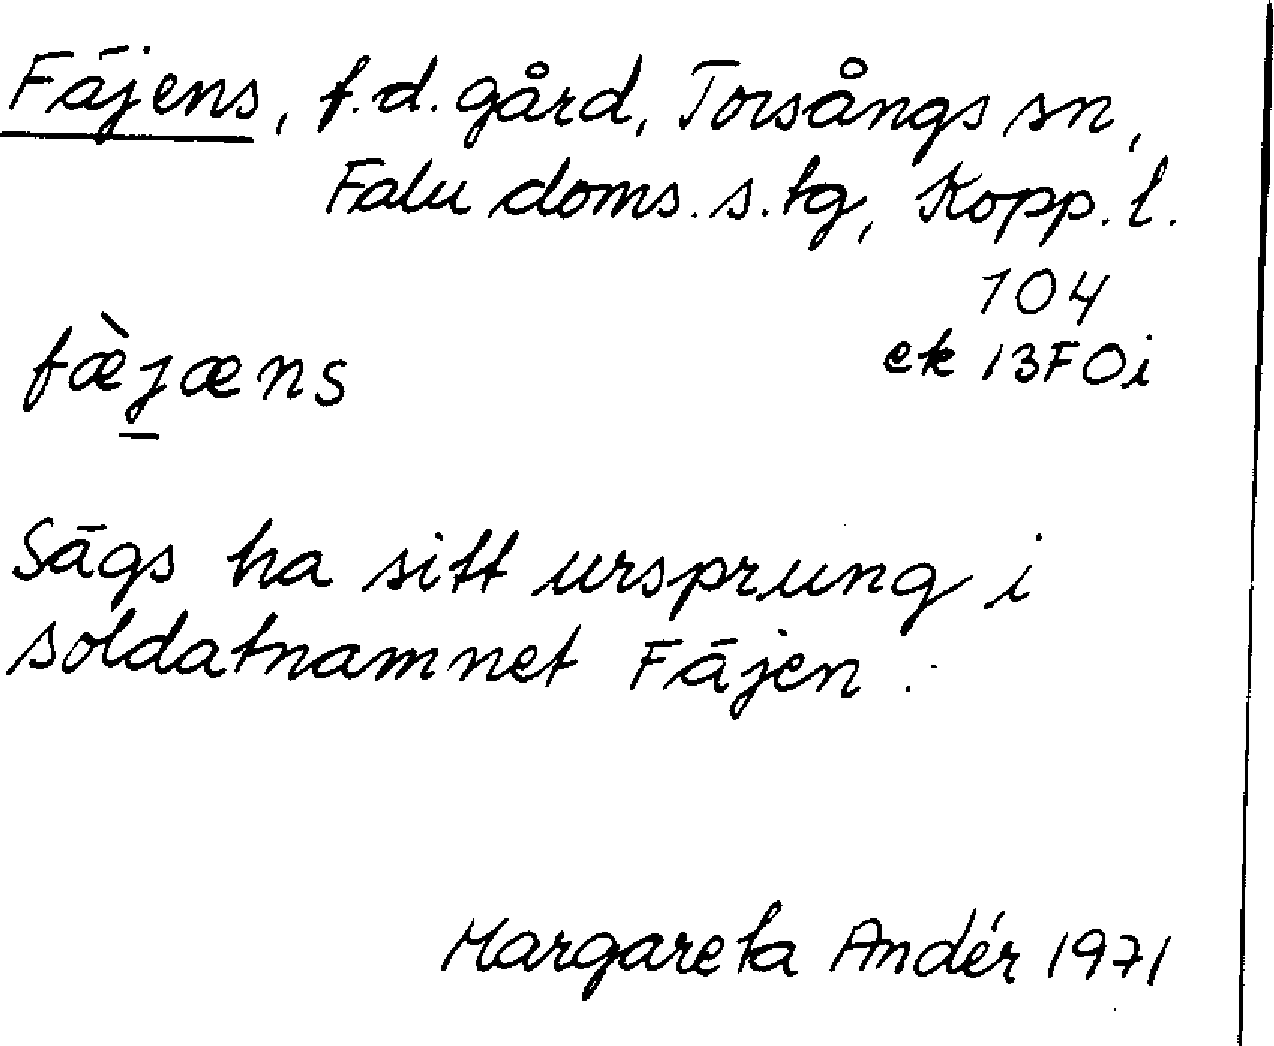 Fäjens, f.d. gård, Torsångs sn,
Falu doms.s.tg, Kopp.l.
104
ek 13F0i
fæ̀jæns
Sägs ha sitt ursprung i
soldatnamnet Fäjen.
Margareta Andér 1971